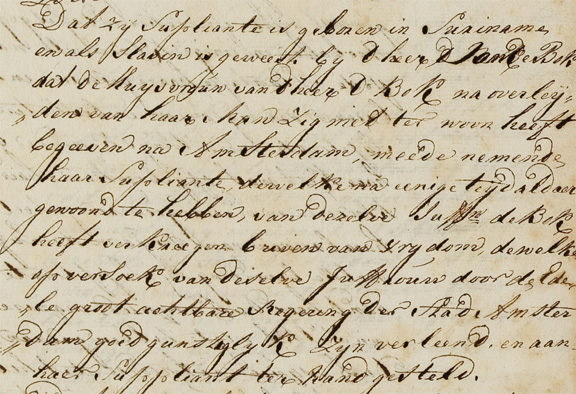 Dat zij Supliante is geboren in Suriname,
en als Slavin is geweest by d'heer D van de Bok
dat de Huysvrouw van d'heer D Bok na overley,,
,,den van haar Man zig met ter woon heeft
begeeven na Amsterdam, meede nemende
haar Supliante, dewelke na eenige tyd aldaar
gewoond te hebben, van dezelve Juffr de Bok
heeft verkreegen brieven van vrydom, dewelke
op versoek van deselve Juffrouw door de Ede
,,le groot achtbare Regering der Stad Amster
,,dam goed gunstiglyk zyn verleend, en aan
haer Suppliant ter hand gesteld.